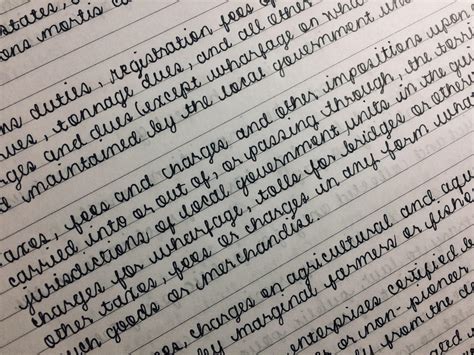 states,
ons mortis c
ms duties, registration fees of
ues, tonnage dues, and all other
rges and dues (except wharfage on wha
d maintained by the local government un
axes, fees and charges and other impositions upon
carried into or out of, or passing through, the terri
jurisdictions of local government units in the gui
charges for wharfage, tolls for bridges or othe
other taxes, fees or charges in any form wha
uch goods or merchandise
es, charges on agricultural and aqu
by marginal farmers or fishe
enterprises certified
s or non-pioneer
ly from the da